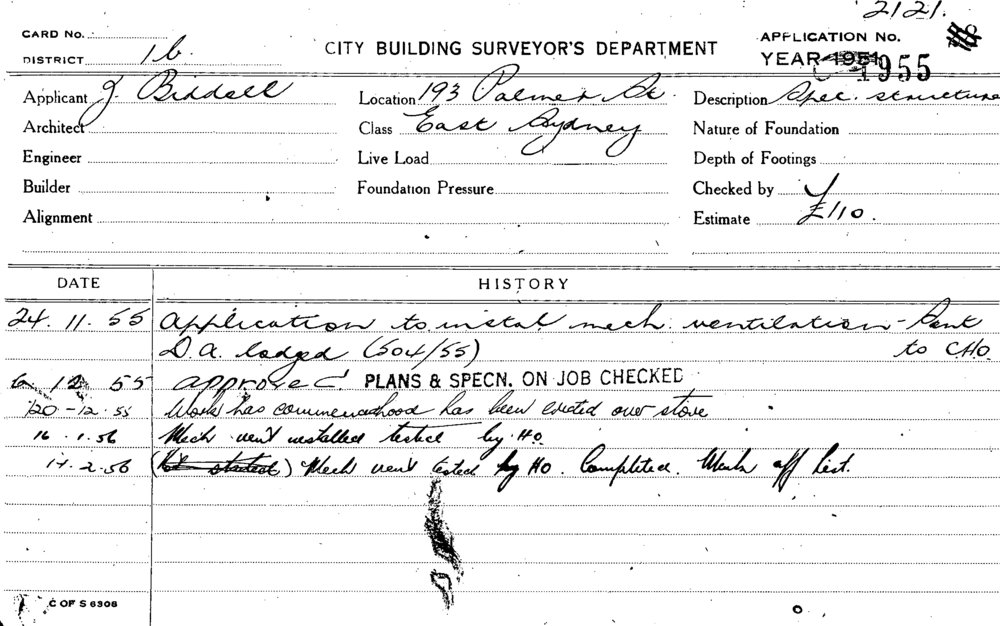 2121.
CARD NO.
DISTRICT 16
CITY BUILDING SURVEYOR'S DEPARTMENT
APPLICATION NO.
YEAR 1951 1955
Applicant J. Biddell Location 193 Palmer St. Description Spec. structure
Architect Class East Sydney Nature of Foundation
Engineer Live Load Depth of Footings
Builder Foundation Pressure Checked by
Alignment Estimate £110.
DATE HISTORY
24.11.55 Application to instal mech. ventilation - Sent
D.A. lodged (504/55) to C.H.O.
6 12 55 approved. PLANS & SPECN. ON JOB CHECKED
20-12.55 Work has commenced hood has been erected over stove
16.1.56 Mech vent installed tested by H.O.
14.2.56 (Not started) Mech vent tested by HO. Completed. Mark off list.
C OF S 6308